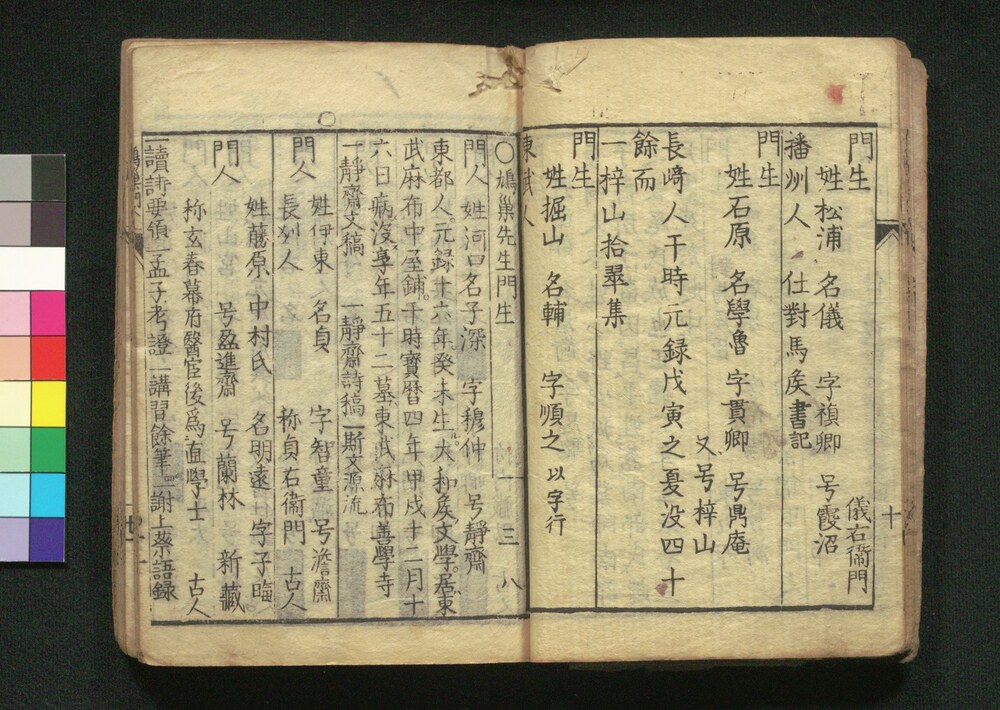 門生
姓松浦 名儀 字禎卿 号霞沼 儀右衞門
播刕人 仕對馬矦書記
門生
姓石原 名學魯 字貫卿 号鼎庵
又号梓山
長崎人干時元録戊寅之夏没四十
餘而
一梓山拾翠集
門生
姓掘山 名輔 字順之 以字行
東武人
十
〇鳩巣先生門生 一三八
門人 姓河口名子深 字穆仲 号靜齋
東都人。元録十六年癸未生。大和矦文學。居東
武麻布中屋鋪。干時寳暦四年甲戌十二月十
六日病没享年五十二墓東武麻布善學寺
一靜齋文稿 一靜齋詩稿 一斯文源流
門人 姓伊東 名貞 字智童 号澹齋
長刕人 称貞右衞門 古人
姓藤原 中村氏 名明遠 字子晦
門人 号盈進齋 号蘭林 新藏
称玄春幕府醫官後爲直學士 古人
一讀詩要領 一孟子考證 一講習餘筆 一謝上蔡語録